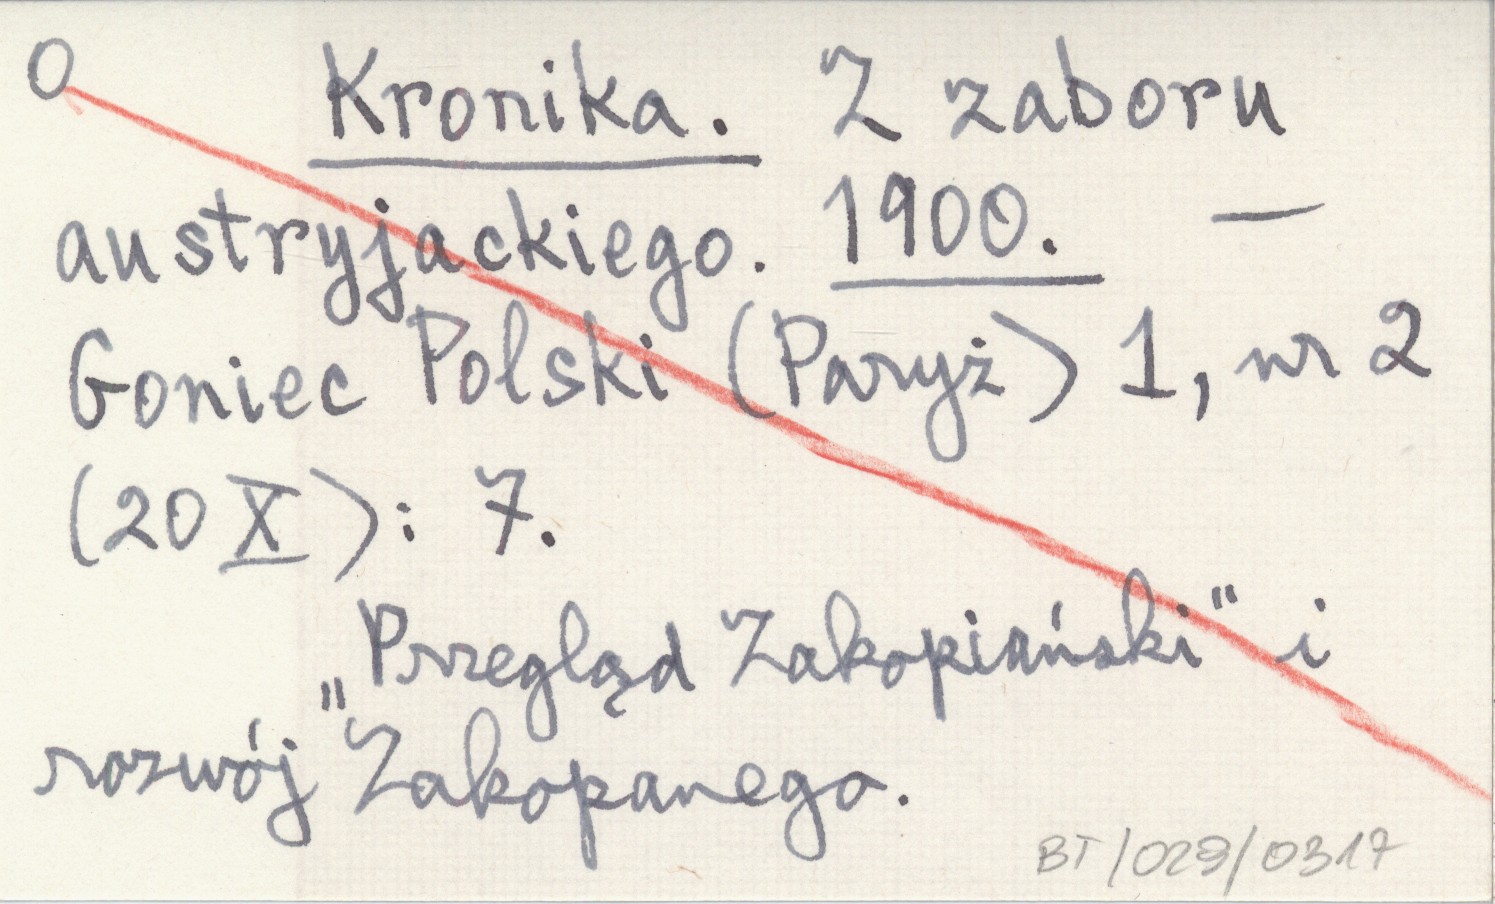 O Kronika. Z zaboru
austryjackiego. 1900. —
Goniec Polski (Paryż) 1, nr 2
(20 X): 7.
„Przegląd Zakopiański" i
rozwój Zakopanego.
BT/029/0317